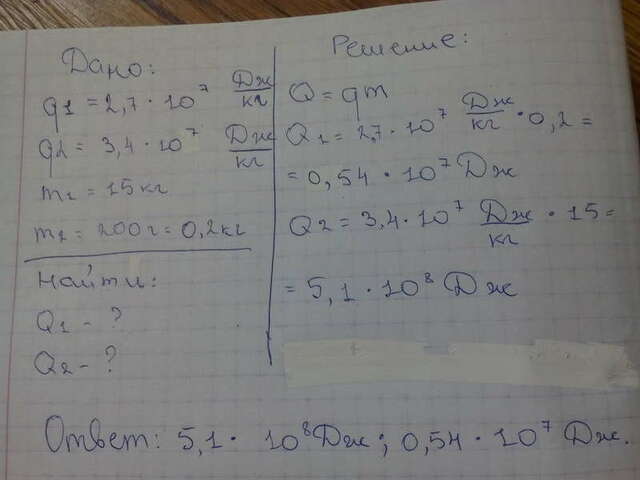 Дано:
q1 = 2,7 · 10⁷ Дж/кг
q2 = 3,4 · 10⁷ Дж/кг
m1 = 15кг
m2 = 200г = 0,2кг
Найти:
Q1 - ?
Q2 - ?
Решение:
Q = qm
Q1 = 2,7 · 10⁷ Дж/кг · 0,2 =
= 0,54 · 10⁷ Дж
Q2 = 3,4 · 10⁷ Дж/кг · 15 =
= 5,1 · 10⁸ Дж
Ответ: 5,1 · 10⁸ Дж; 0,54 · 10⁷ Дж.